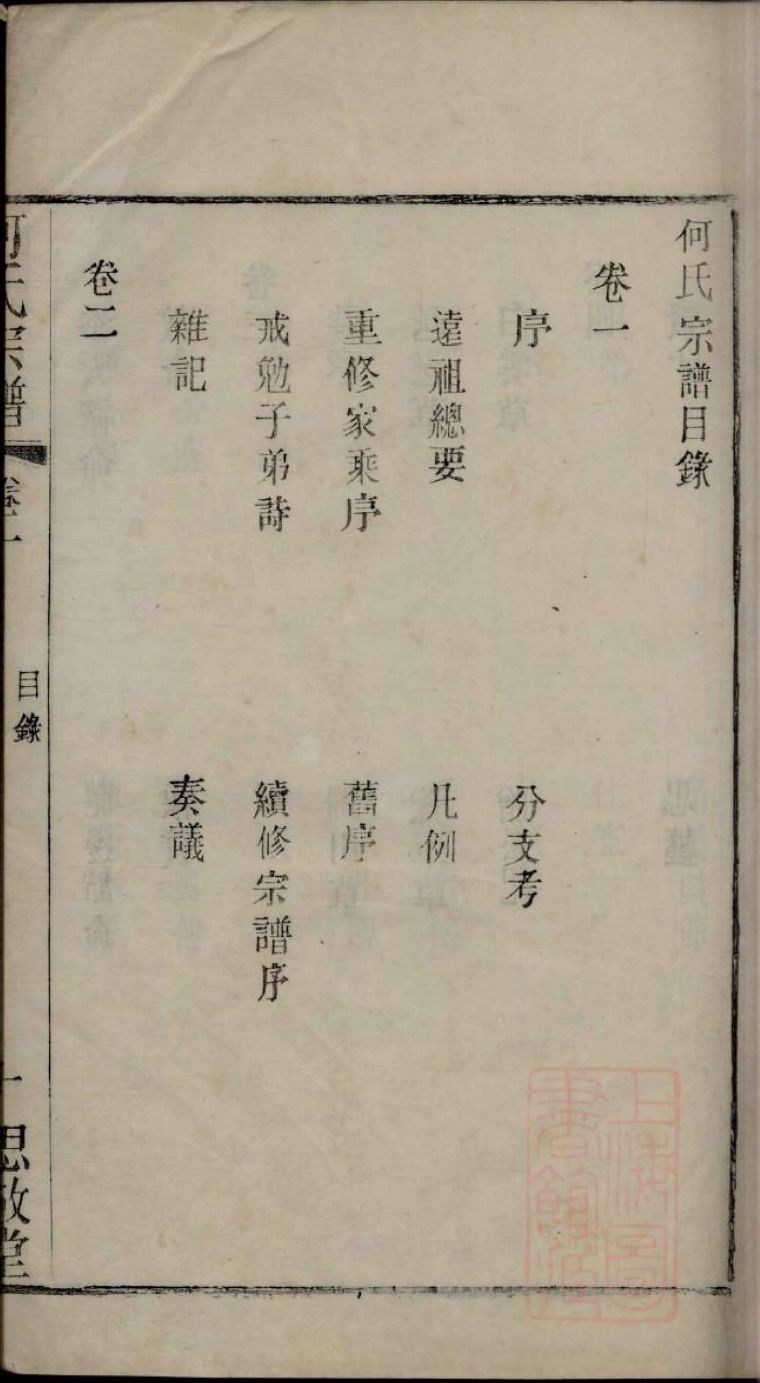 何氏宗譜目錄
卷一
序
分支考
遠祖總要
凡例
重修家乘序
舊序
戒勉子弟詩
續修宗譜序
雜記
奏議
卷二
何氏宗譜
卷一
目錄
一
思敬堂
上海圖書館藏